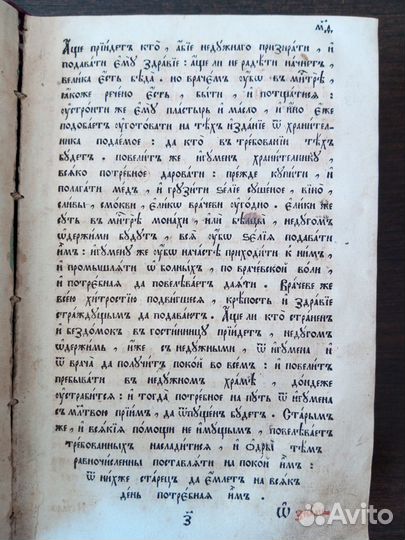 м҃д.
Аще прїидетъ кто̀, а́бїе недꙋ́жнаго призира́ти, и҆
подава́ти є҆мꙋ̀ здра́вїе: а҆́ще ли не радѣ́ти начне́тъ,
вели́ка є҆́сть бѣда̀. но врачє́мъ ᲂу҆́бѡ в̾ мн҃трѣ̀,
ꙗ҆́коже рече́но є҆́сть, бы́ти, и҆ потща́тисѧ:
ᲂу҆стро́ити же є҆мꙋ̀ пла́стырь и҆ ма́сло, и҆ и҆́но є҆́же
подоба́етъ ᲂу҆гото́вати на тѣ́хъ и҆зда́нїе ѿ храни́тел-
ника подае́мое: да кто̀ в̾ тре́бованїи тѣ́хъ
бꙋ́детъ. повели́тъ же и҆гꙋ́менъ храни́телникꙋ,
всѧ́ко потре́бное дарова́ти: пре́жде кꙋпи́ти, и҆
полага́ти ме́дъ, и҆ грꙋзи́ти ѕе́лїе сꙋше́ное, вїно̀,
сли́вы, смо́кви, є҆ли́кѡ враче́ви ᲂу҆го́дно. Є҆ли́ки же
сꙋ́ть в̾ мн҃трѣ̀ мона́хи, и҆лѝ бѣльцы̀, недꙋ́гомъ
ѡ҆держи́ми бꙋ́дꙋтъ, всѧ̑ ᲂу҆́бѡ ѕє́лїѧ подава́ти
и҆̀мъ: и҆гꙋ́менꙋ же ᲂу҆́бѡ ча́стѣ приходи́ти к̾ ни́мъ,
и҆ промышлѧ́ти ѡ҆ болны́хъ, по враче́вской во́ли,
и҆ потрє́бнаѧ да повелѣва́етъ даѧ́ти. Враче́ве же
все́ю хи́тростїю подви́гшесѧ, крѣ́пость и҆ здра́вїе
стра́ждꙋщымъ да подава́ютъ. А҆́ще ли кто̀ стра́ненъ
и҆ бездо́мокъ в̾ гости́нницꙋ прїи́детъ, недꙋ́гомъ
ѡ҆держи́мь, и҆́же съ недꙋ́жными, ѿ и҆гꙋ́мена и҆
ѿ врача̀ да полꙋчи́тъ поко́й во все́мъ: и҆ повели́тъ
пребыва́ти в̾ недꙋ́жномъ хра́мѣ, до́ндеже
ᲂу҆стра́витсѧ: и҆ тогда̀ потре́бное на пꙋ́ть ѿ и҆гꙋ́мена
с̾ мл҃твою прїи́мъ, да ѿпꙋ́щенъ бꙋ́детъ. Ста́рымъ
же, и҆ всѧ́кїѧ по́мощи не и҆мꙋ́щымъ, повелѣва́етъ
тре́бованныхъ наслади́тисѧ, и҆ ѻ҆дры̀ тѣ́мъ
равночи́сленны поставлѧ́ти на поко́й и҆̀мъ:
ѿ ни́хже ста́рецъ да є҆́млетъ на всѧ́къ
де́нь потрє́бнаѧ и҆̀мъ.
ѕ҃
Avito